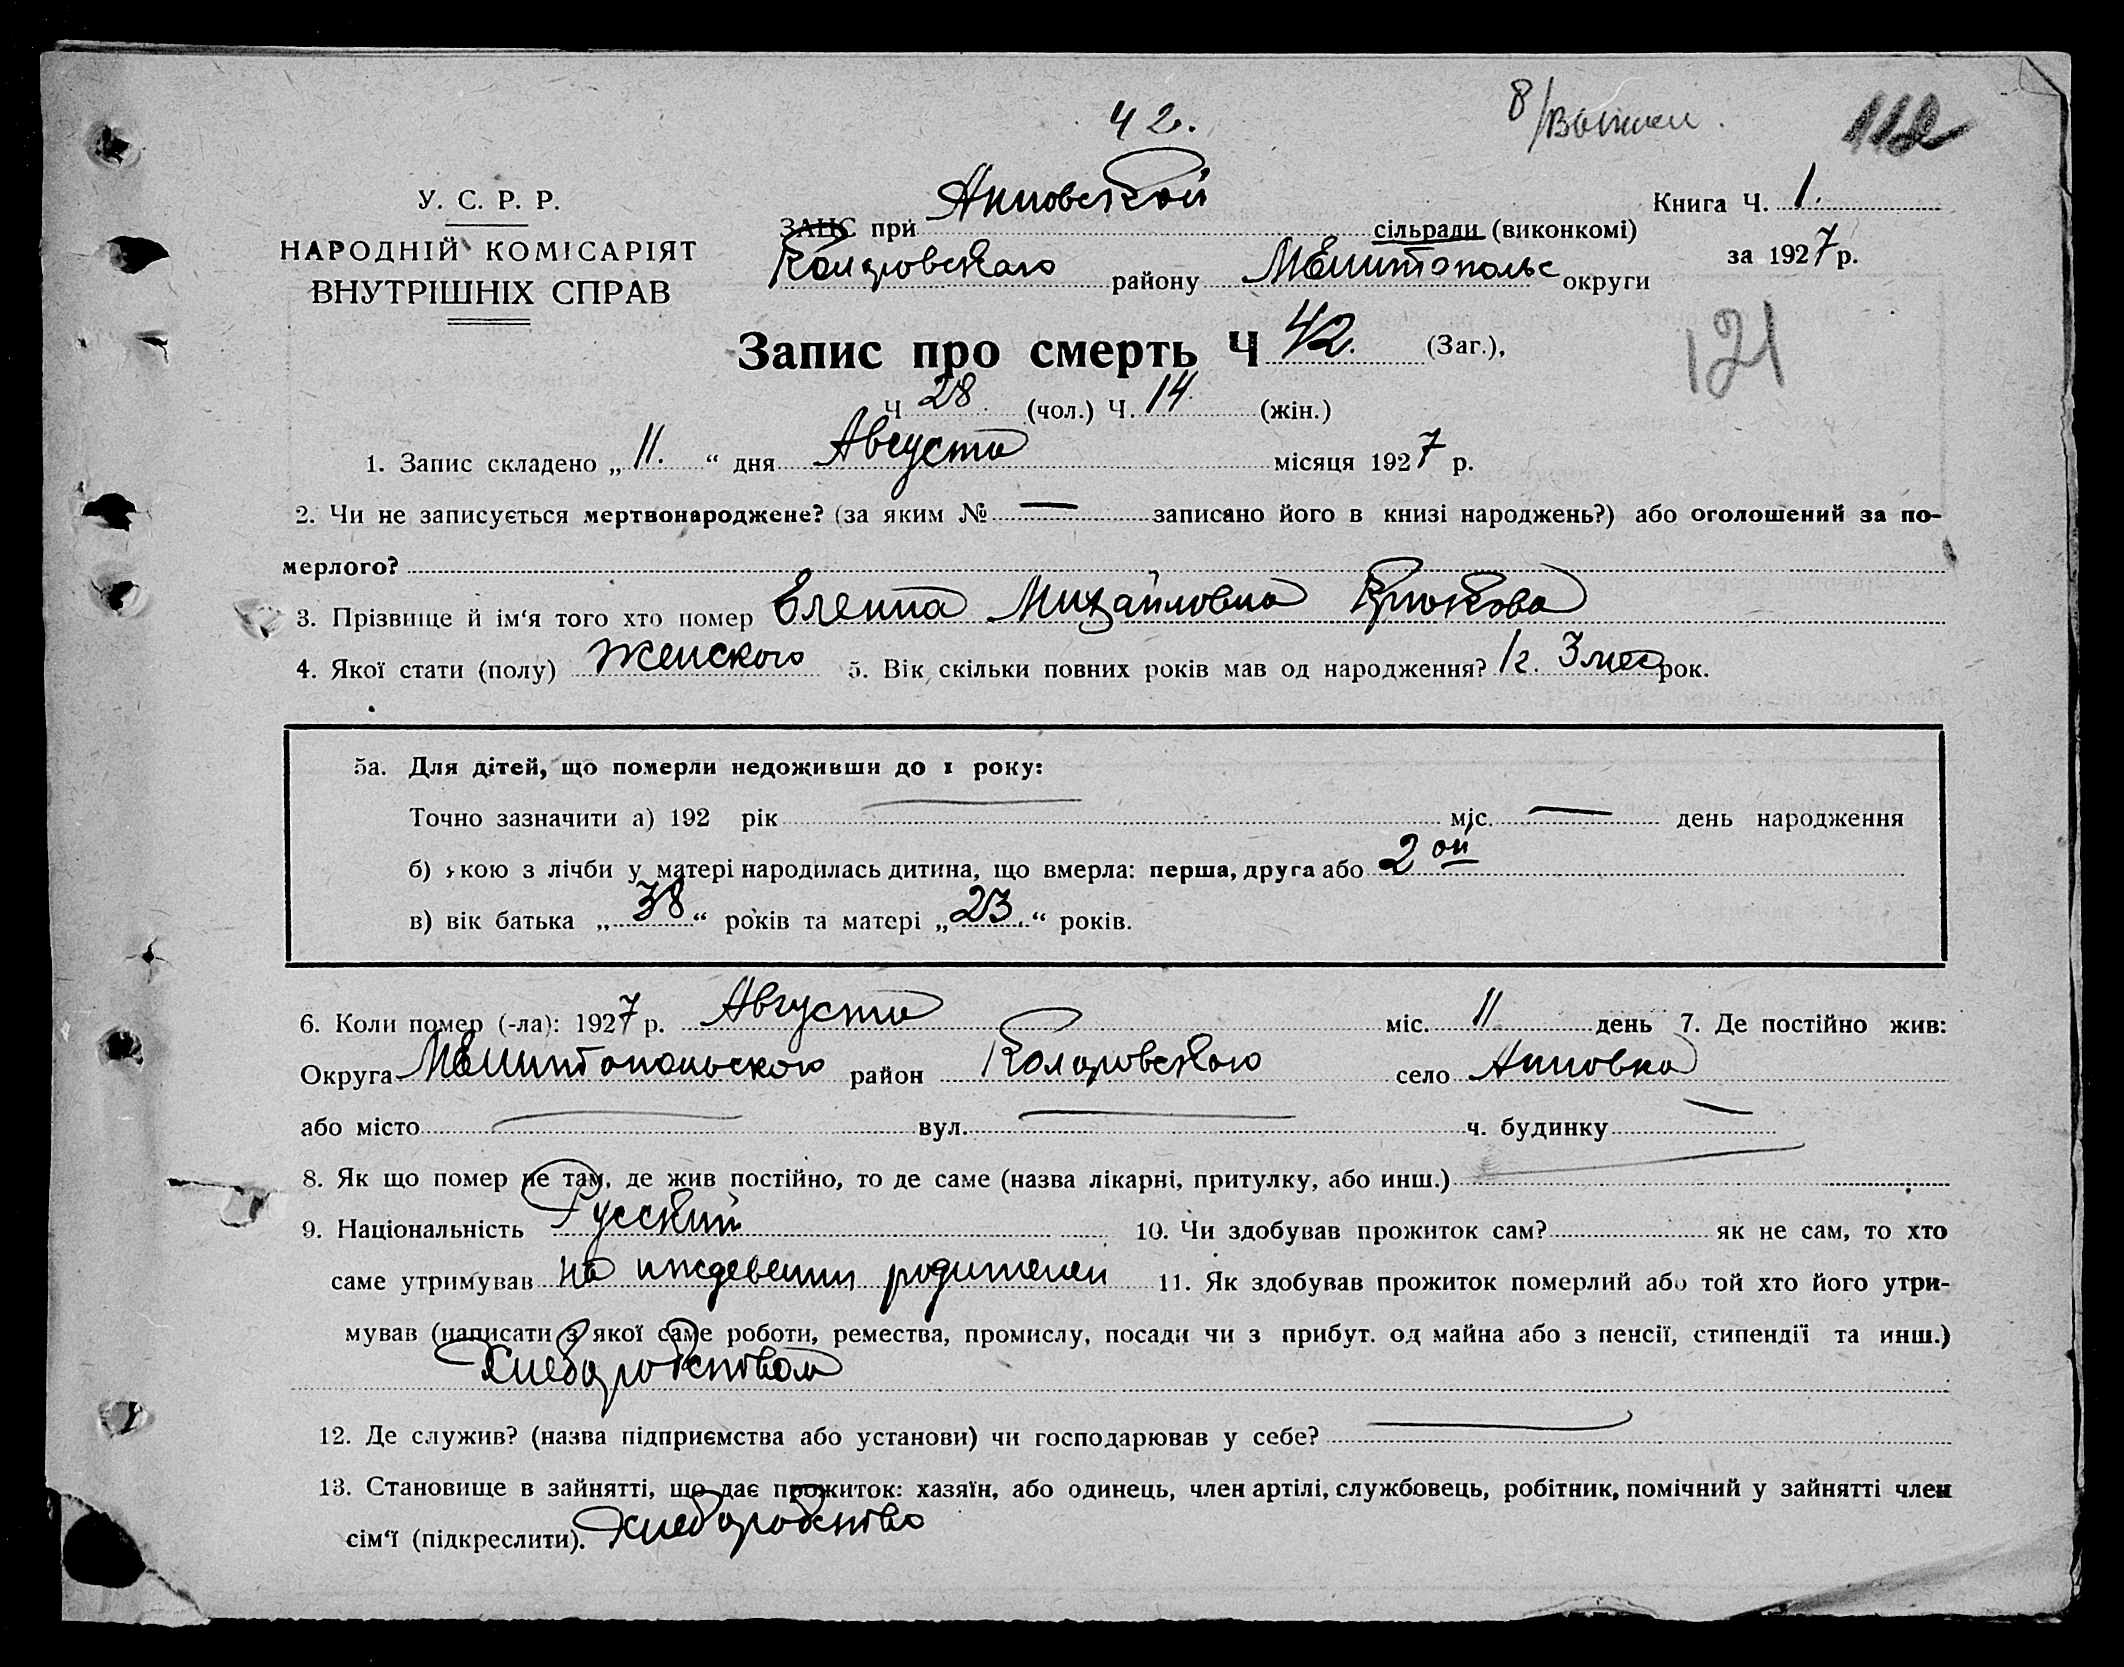 42.
8/
112
У. С. Р. Р.
НАРОДНІЙ КОМІСАРІЯТ
ВНУТРІШНІХ СПРАВ
ЗАПС при Анновской сільради (виконкомі)
Коларовскаго району Мелитопольс округи
Книга Ч. 1.
за 1927 р.
Запис про смерть Ч 42. (Заг.),
121
Ч 28 (чол.) Ч. 14 (жін.)
1. Запис складено „11.“ дня Августа місяця 1927 р.
2. Чи не записується мертвонароджене? (за яким № — записано його в книзі народжень?) або оголошений за по-
мерлого?
3. Прізвище й ім‘я того хто помер Еленна Михайловна Крюкова
4. Якої стати (полу) Женского 5. Вік скільки повних років мав од народження? 1 г. 3 мес рок.
5а. Для дітей, що померли недоживши до 1 року:
Точно зазначити а) 192 рік — міс. — день народження
б) якою з лічби у матері народилась дитина, що вмерла: перша, друга або 2 ой
в) вік батька „38“ років та матері „23.“ років.
6. Коли помер (-ла): 1927 р. Августа міс. 11 день 7. Де постійно жив:
Округа Мелитопольского район Коларовскаго село Анновка
або місто — вул. — ч. будинку —
8. Як що помер не там, де жив постійно, то де саме (назва лікарні, притулку, або инш.) —
9. Національність Русский 10. Чи здобував прожиток сам? як не сам, то хто
саме утримував на иждевении родителей 11. Як здобував прожиток померлий або той хто його утри-
мував (написати з якої саме роботи, ремества, промислу, посади чи з прибут. од майна або з пенсії, стипендії та инш.)
Хлебаробством
12. Де служив? (назва підприємства або установи) чи господарював у себе? —
13. Становище в зайнятті, що дає прожиток: хазяїн, або одинець, член артілі, службовець, робітник, помічний у зайнятті член
сім‘ї (підкреслити). Хлебаробство